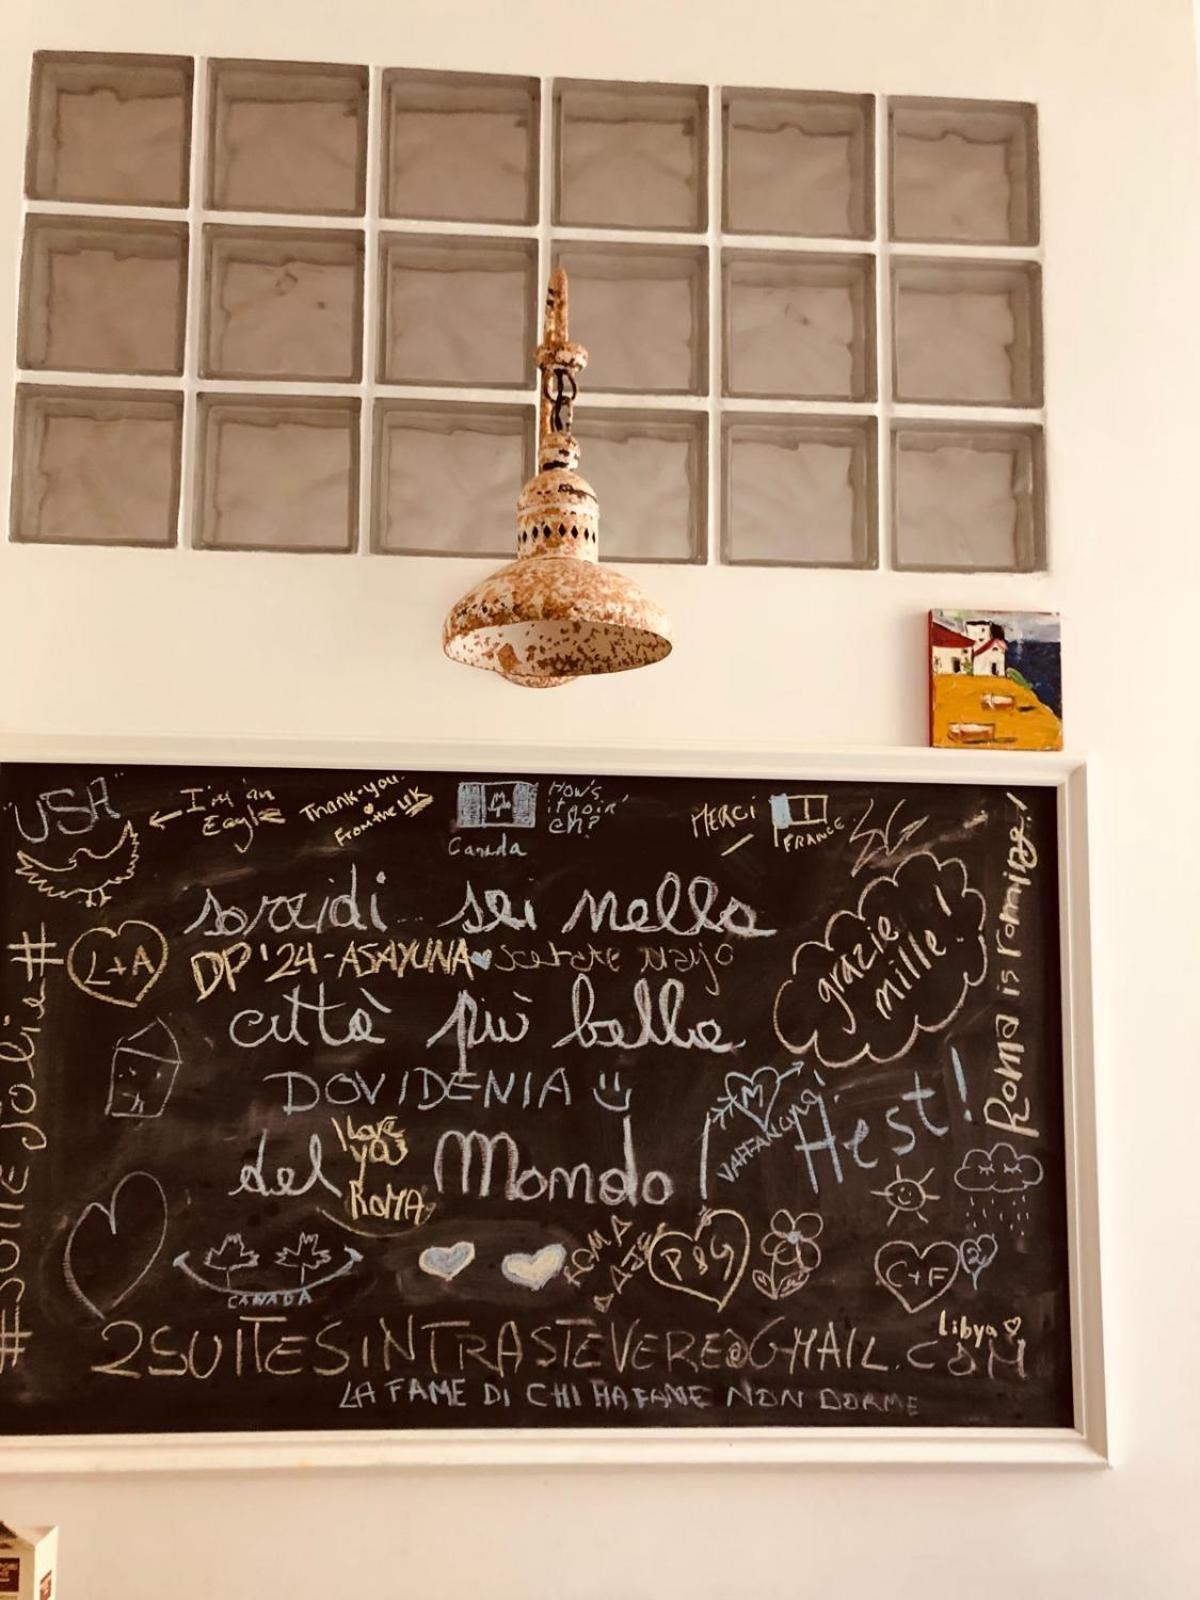 "USA"
I'm an
Eagle
Thank-you
From the UK
How's
it goin'
eh?
Canada
MERCI
FRANCE
sorridi sei nella
DP '24-ASAYUNA
L+A
grazie
mille!
Roma is roming!!
città più bella
DOVIDENIA
M
VAFFANCUNQ
Hest!
del Mondo!
I love
you
ROMA
CANADA
ROMA
P&G
C+F
Libya
2SUITESINTRASTEVERE@GMAIL.COM
LA FAME DI CHI HA FAME NON DORME
#SUITE JOLIE#